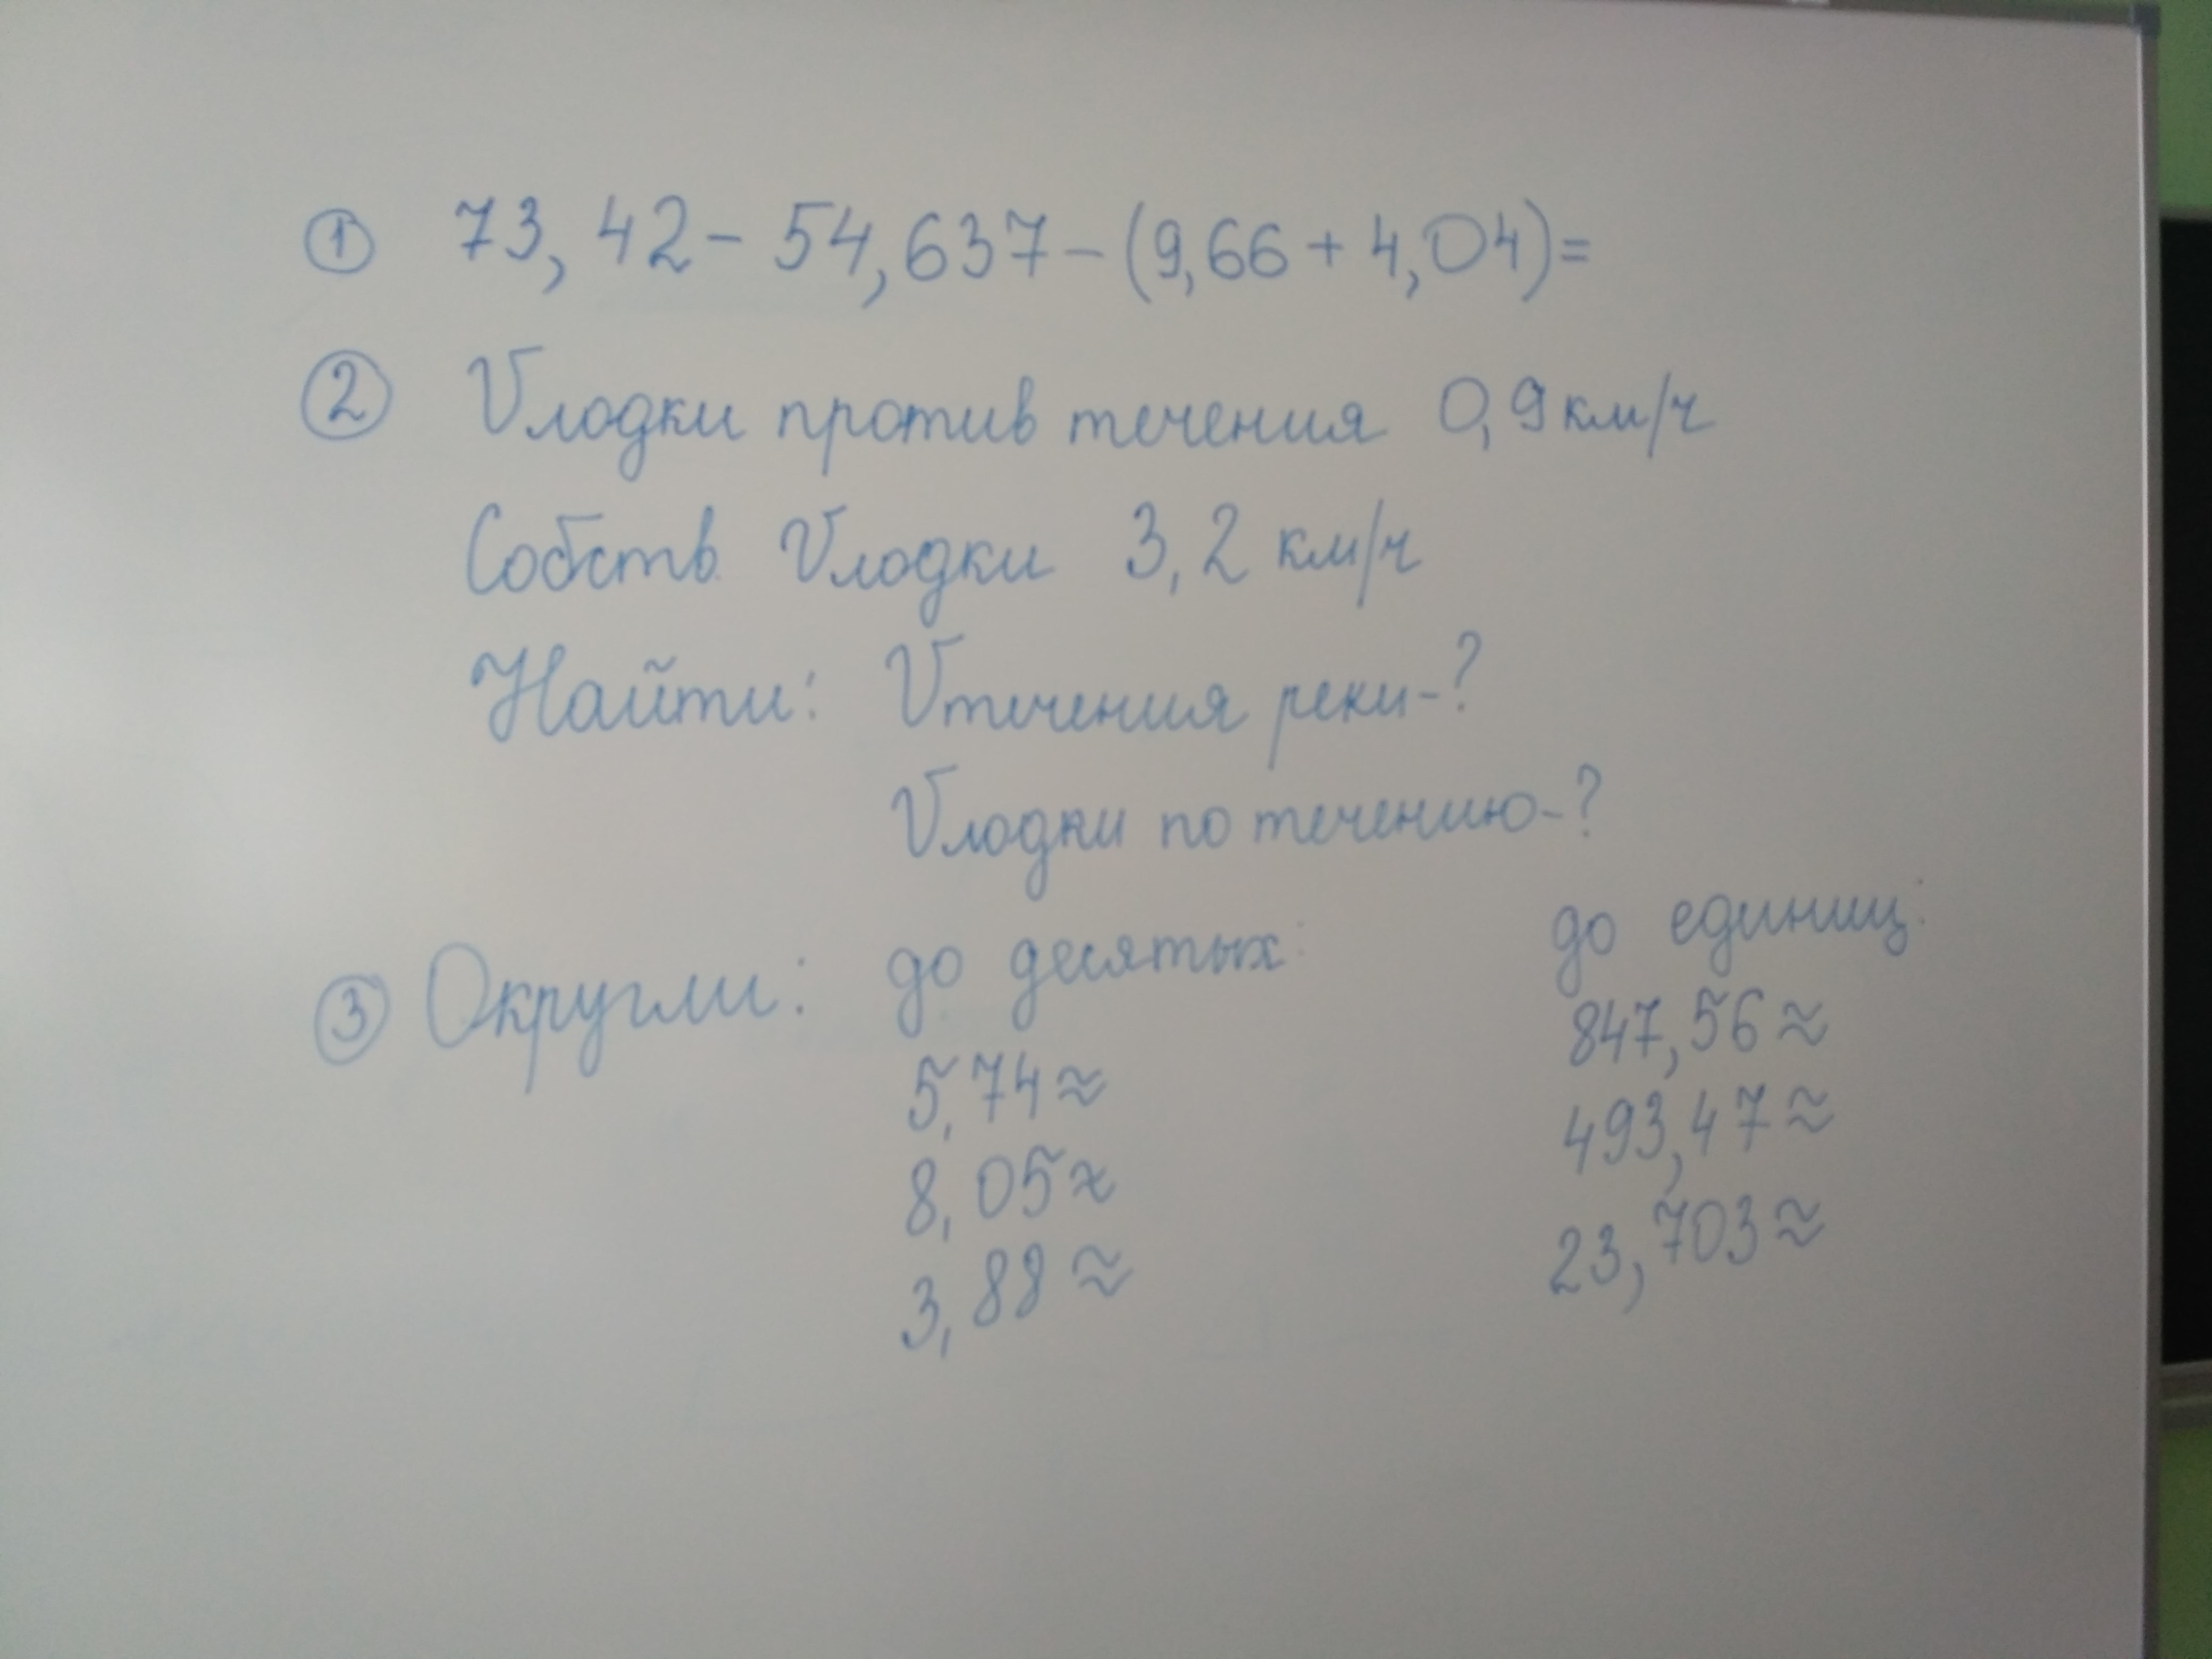 ① 73,42 - 54,637 - (9,66 + 4,04) =
② Vлодки против течения 0,9 км/ч
Собств. Vлодки 3,2 км/ч
Найти: Vтечения реки-?
Vлодки по течению-?
③ Округли: до десятых: до единиц:
5,74≈ 847,56≈
8,05≈ 493,47≈
3,88≈ 23,703≈